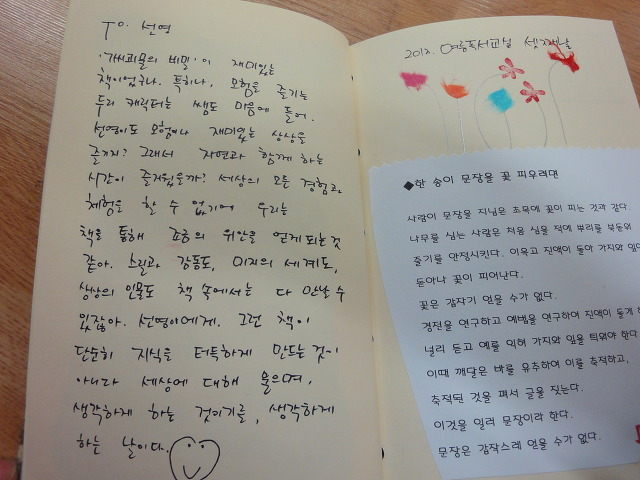 To. 선영
'가시괴물의 비밀'이 재미있는
책이었구나. 특히나, 모험을 즐기는
두리 캐릭터는 쌤도 마음에 들어.
선영이도 모험이나 재미있는 상상을
즐기지? 그래서 자연과 함께 하는
시간이 즐거웠을까? 세상의 모든 경험과
체험을 할 수 없기에 우리는
책을 통해 조금의 위안을 얻게 되는 것
같아. 스릴과 감동도, 미지의 세계도,
상상의 인물도 책 속에서는 다 만날 수
있잖아. 선영이에게. 그런 책이
단순히 지식을 터득하게 만드는 것이
아니라 세상에 대해 물으며,
생각하게 하는 것이기를, 생각하게
하는 날이다.
여름독서교실 셋째날
◆한 송이 문장을 꽃 피우려면
사람이 문장을 지님은 초목에 꽃이 피는 것과 같다.
나무를 심는 사람은 처음 심을 적에 뿌리를 북돋워
줄기를 안정시킨다. 이윽고 진액이 돌아 가지와 잎이
돋아나 꽃이 피어난다.
꽃은 갑자기 얻을 수가 없다.
경전을 연구하고 예법을 연구하여 진액이 돌게 하
널리 듣고 예를 익혀 가지와 잎을 틔워야 한다
이때 깨달은 바를 유추하여 이를 축적하고,
축적된 것을 펴서 글을 짓는다.
이것을 일러 문장이라 한다.
문장은 갑작스레 얻을 수가 없다.